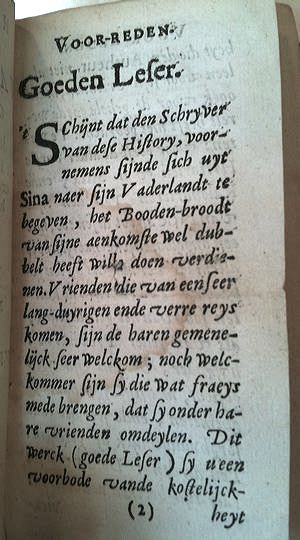 VOOR-REDEN.
Goeden Leser.
't SChijnt dat den Schryver
van dese History, voor-
nemens sijnde sich uyt
Sina naer sijn Vaderlandt te
begeven, het Booden-broodt
van sijne aenkomste wel dub-
belt heeft willen doen verdie-
nen. Vrienden die van een seer
lang-duyrigen ende verre reys
komen, sijn de haren gemene-
lijck seer welckom; noch welc-
kommer sijn sy die wat fraeys
mede brengen, dat sy onder ha-
re vrienden omdeylen. Dit
werck (goede Leser) sy u een
voorbode vande kostelijck-
(2) heyt